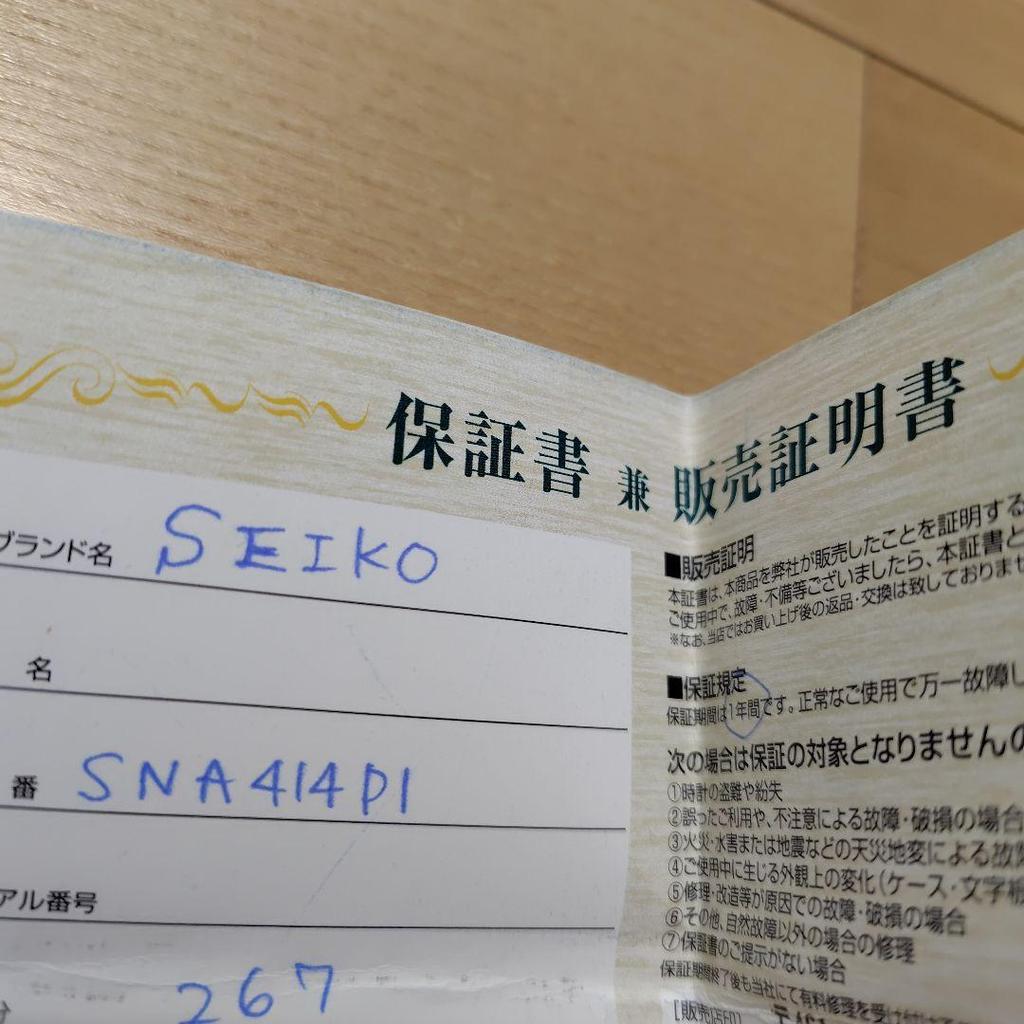 保証書 兼 販売証明書
ブランド名 SEIKO
名
番 SNA414P1
アル番号
267
■販売証明
本証書は、本商品を弊社が販売したことを証明する
ご使用中で、故障・不備等ございましたら、本証書と
※なお、当店ではお買い上げ後の返品・交換は致しておりませ
■保証規定
保証期間は1年間です。正常なご使用で万一故障し
次の場合は保証の対象となりませんの
①時計の盗難や紛失
②誤ったご利用や、不注意による故障・破損の場合
③火災・水害または地震などの天災地変による故障
④ご使用中に生じる外観上の変化(ケース・文字板
⑤修理・改造等が原因での故障・破損の場合
⑥その他、自然故障以外の場合の修理
⑦保証書のご提示がない場合
保証期間終了後も当社にて有料修理を受け付け
[販売店印] 〒